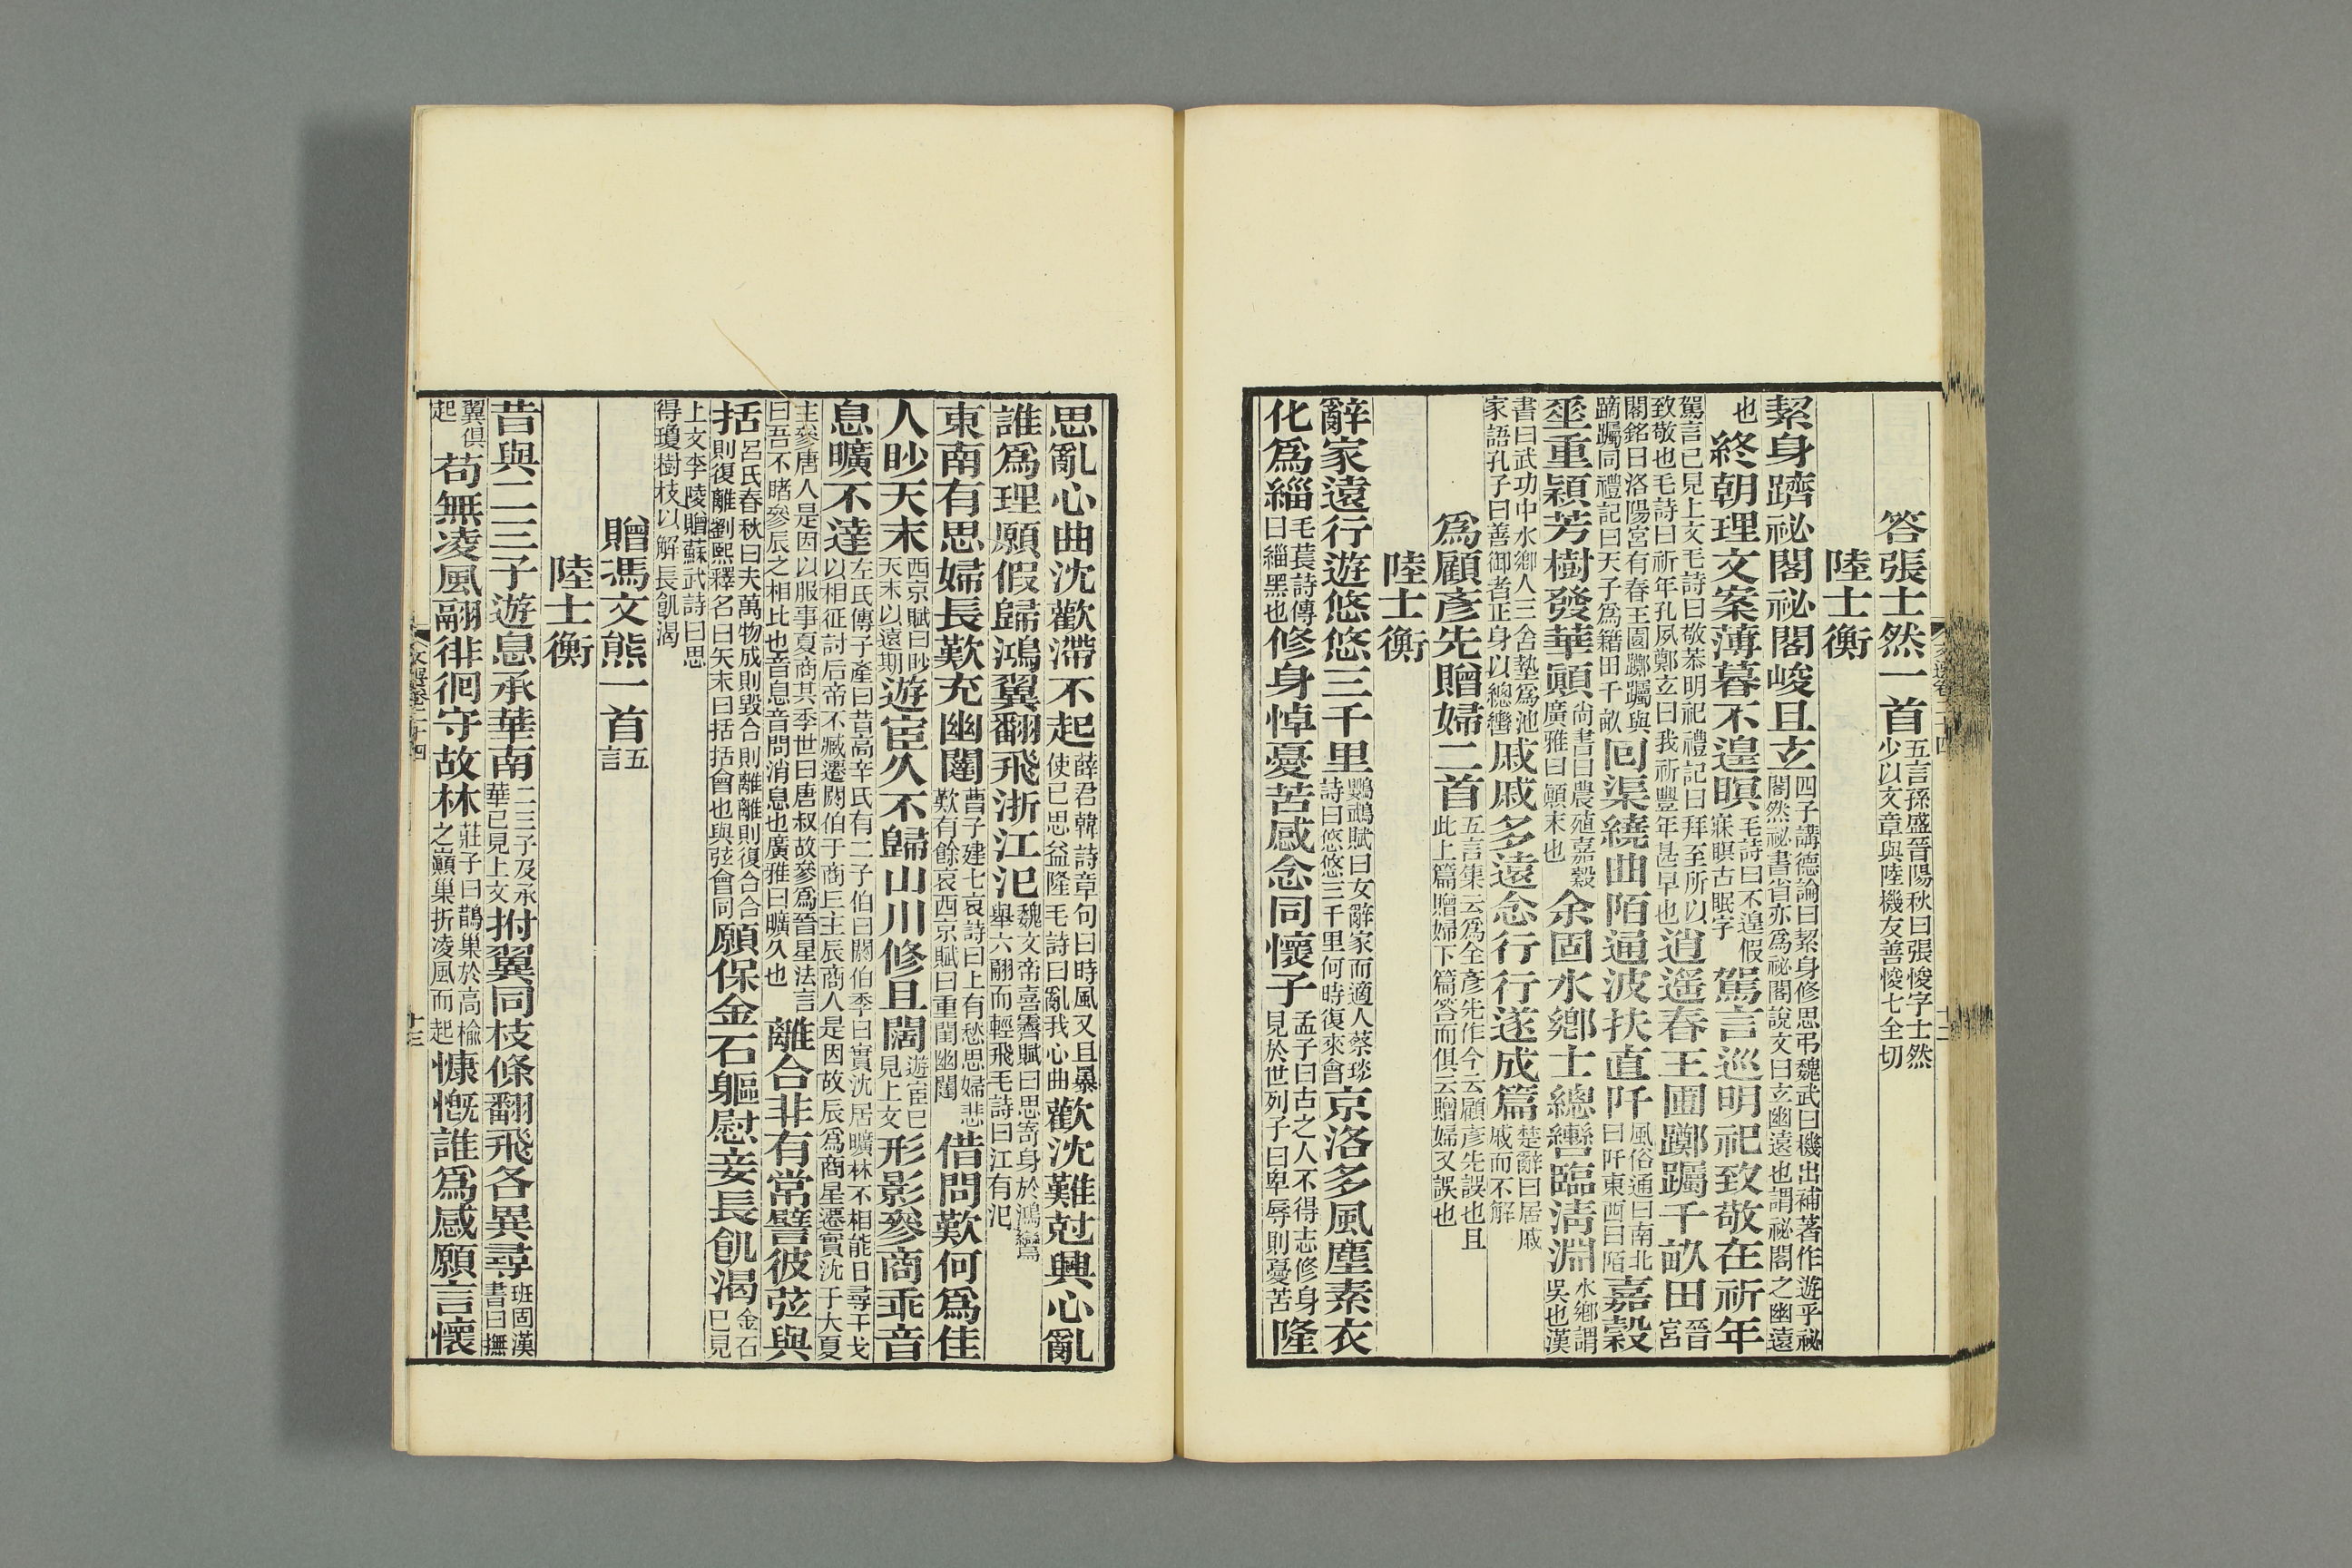 答張士然一首五言孫盛晉陽秋曰張悛字士然少以文章與陸機友善悛七全切
陸士衡
絜身躋祕閣祕閣峻且玄四子講德論曰絜身修思弔魏武曰機出補著作遊乎祕閣然祕書省亦爲祕閣說文曰玄幽遠也謂祕閣之幽遠
也終朝理文案薄暮不遑暝毛詩曰不遑假寐瞑古眠字駕言巡明祀致敬在祈年
駕言已見上文毛詩曰敬恭明祀禮記曰拜至所以致敬也毛詩曰祈年孔夙鄭玄曰我祈豐年甚早也逍遥春王圃躑躅千畝田晉宮
閣銘曰洛陽宮有春王園躑躅與蹢躅同禮記曰天子爲籍田千畝回渠繞曲陌通波扶直阡風俗通曰南北曰阡東西曰陌嘉穀
垂重穎芳樹發華顚尚書曰農殖嘉穀廣雅曰顚末也余固水鄉士總轡臨淸淵水鄉謂吳也漢
書曰武功中水鄉人三舍墊爲池家語孔子曰善御者正身以總轡戚戚多遠念行行遂成篇楚辭曰居戚戚而不解
爲顧彥先贈婦二首五言集云爲全彥先作今云顧彥先誤也且此上篇贈婦下篇答而俱云贈婦又誤也
陸士衡
辭家遠行遊悠悠三千里鸚鵡賦曰女辭家而適人蔡琰詩曰悠悠三千里何時復來會京洛多風塵素衣
化爲緇毛萇詩傳曰緇黑也修身悼憂苦感念同懷子孟子曰古之人不得志修身見於世列子曰卑辱則憂苦隆
思亂心曲沈歡滯不起薛君韓詩章句曰時風又且暴使己思益隆毛詩曰亂我心曲歡沈難尅興心亂
誰爲理願假歸鴻翼翻飛浙江汜魏文帝喜霽賦曰思寄身於鴻鸞舉六翮而輕飛毛詩曰江有汜
東南有思婦長歎充幽闥曹子建七哀詩曰上有愁思婦悲歎有餘哀西京賦曰重閨幽闥借問歎何爲佳
人眇天末西京賦曰眇天末以遠期遊宦久不歸山川修且闊遊宦已見上文形影參商乖音
息曠不達左氏傳子產曰昔高辛氏有二子伯曰閼伯季曰實沈居曠林不相能日尋干戈以相征討后帝不臧遷閼伯于商丘主辰商人是因故辰爲商星遷實沈于大夏
主參唐人是因以服事夏商其季世曰唐叔故參爲晉星法言曰吾不睹參辰之相比也音息音問消息也廣雅曰曠久也離合非有常譬彼弦與
括呂氏春秋曰夫萬物成則毀合則離離則復合合則復離劉熙釋名曰矢末曰括括會也與弦會同願保金石軀慰妾長飢渴金石已見
上文李陵贈蘇武詩曰思得瓊樹枝以解長飢渴
贈馮文熊一首五言
陸士衡
昔與二三子遊息承華南二三子及承華已見上文拊翼同枝條翻飛各異尋班固漢書曰撫
翼俱起苟無凌風翮徘徊守故林莊子曰鵲巢於高榆之巔巢折凌風而起慷慨誰爲感願言懷
文選卷二十四
十三